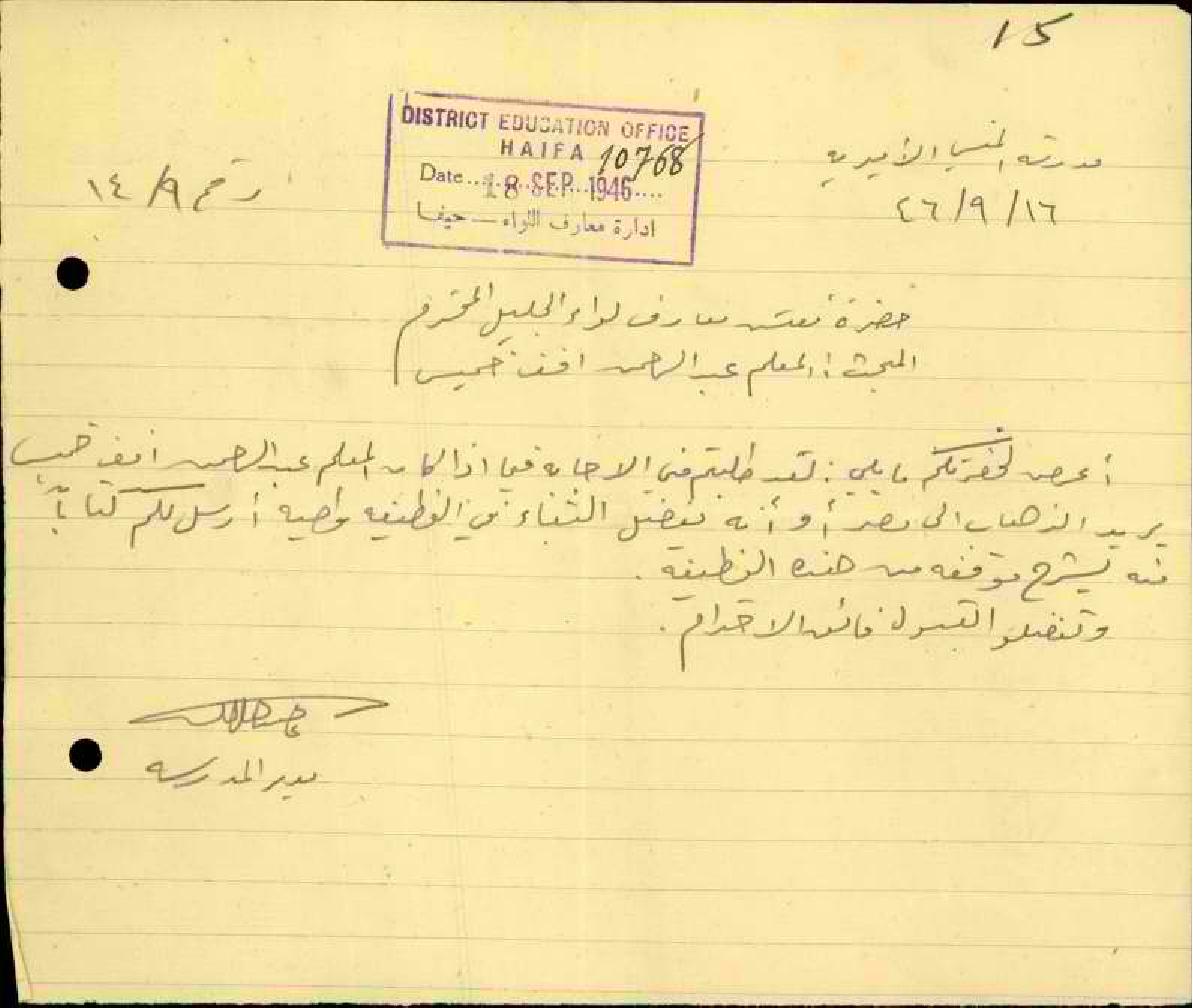 15
DISTRICT EDUCATION OFFICE
HAIFA 10768
Date..... 18 SEP. 1946....
ادارة معارف اللواء — حيفا
مدرسة المنسي الأميرية
٤٦/٩/١٦
رقم ١٤/٩
حضرة مفتش معارف لواء الجليل المحترم
المبحث: المعلم عبد الرحمن افندي خميس
أعرض لحضرتكم ما يلي: لقد طلبتم مني الاجابة فيما اذا كان المعلم عبد الرحمن افندي خميس
يريد الذهاب الى مصر أو أنه يفضل البقاء في الوظيفة وعليه أرسل لكم كتاباً
منه يشرح موقفه من هذه الوظيفة.
وتفضلوا بقبول فائق الاحترام.
مدير المدرسة